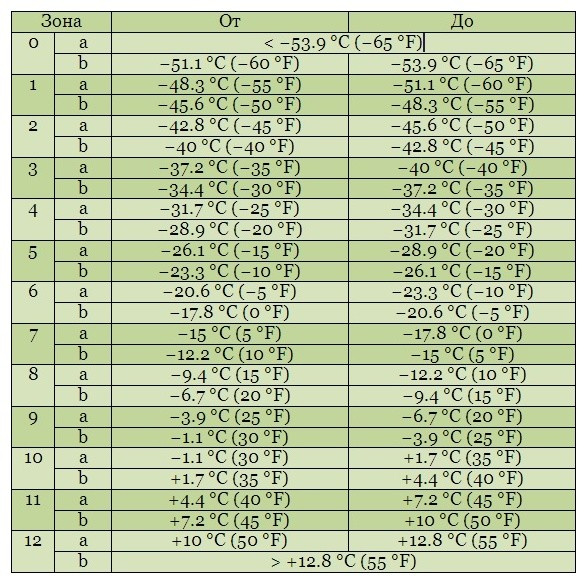 Зона От До
0 a < −53.9 °C (−65 °F)
b −51.1 °C (−60 °F) −53.9 °C (−65 °F)
1 a −48.3 °C (−55 °F) −51.1 °C (−60 °F)
b −45.6 °C (−50 °F) −48.3 °C (−55 °F)
2 a −42.8 °C (−45 °F) −45.6 °C (−50 °F)
b −40 °C (−40 °F) −42.8 °C (−45 °F)
3 a −37.2 °C (−35 °F) −40 °C (−40 °F)
b −34.4 °C (−30 °F) −37.2 °C (−35 °F)
4 a −31.7 °C (−25 °F) −34.4 °C (−30 °F)
b −28.9 °C (−20 °F) −31.7 °C (−25 °F)
5 a −26.1 °C (−15 °F) −28.9 °C (−20 °F)
b −23.3 °C (−10 °F) −26.1 °C (−15 °F)
6 a −20.6 °C (−5 °F) −23.3 °C (−10 °F)
b −17.8 °C (0 °F) −20.6 °C (−5 °F)
7 a −15 °C (5 °F) −17.8 °C (0 °F)
b −12.2 °C (10 °F) −15 °C (5 °F)
8 a −9.4 °C (15 °F) −12.2 °C (10 °F)
b −6.7 °C (20 °F) −9.4 °C (15 °F)
9 a −3.9 °C (25 °F) −6.7 °C (20 °F)
b −1.1 °C (30 °F) −3.9 °C (25 °F)
10 a −1.1 °C (30 °F) +1.7 °C (35 °F)
b +1.7 °C (35 °F) +4.4 °C (40 °F)
11 a +4.4 °C (40 °F) +7.2 °C (45 °F)
b +7.2 °C (45 °F) +10 °C (50 °F)
12 a +10 °C (50 °F) +12.8 °C (55 °F)
b > +12.8 °C (55 °F)